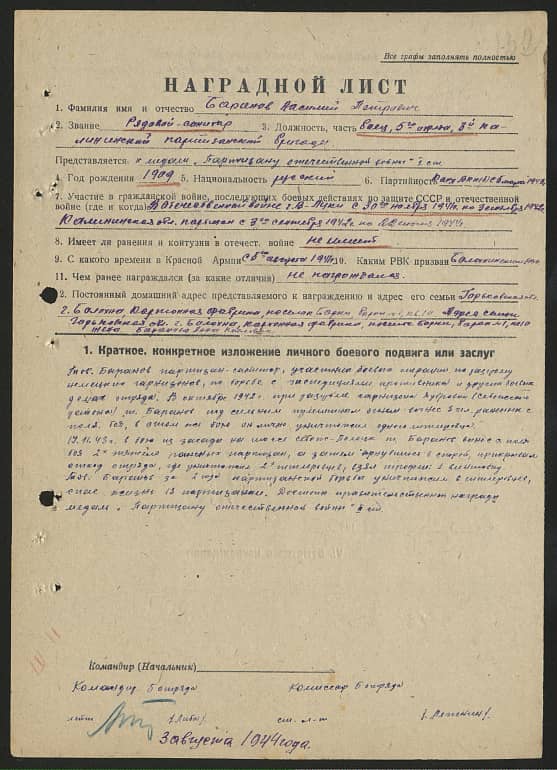 Все графы заполнять полностью
НАГРАДНОЙ ЛИСТ
1. Фамилия имя и отчество Баранов Василий Петрович
2. Звание Рядовой-санитар 3. Должность, часть боец, 5го отряда, 3й Ка-
лининской партизанской бригады
Представляется к медали „Партизану отечественной войны" II ст.
4. Год рождения 1909 5. Национальность русский 6. Партийность
7. Участие в гражданской войне, последующих боевых действиях по защите СССР и отечественной
войне (где и когда) В отечественной войне г. В-Луки с 30го ноября 1941г. по
Калининская обл. партизан с 3го сентября 1942г. по 1944
8. Имеет ли ранения и контузии в отечест. войне не имеет
9. С какого времени в Красной Армии с 5го августа 1941 10. Каким РВК призван Балахнинским
11. Чем ранее награждался (за какие отличия) не награждался
2. Постоянный домашний адрес представляемого к награждению и адрес его семьи Горьковская обл.
г. Балахна, Картонная фабрика, поселок Адрес семьи
Горьковская обл. г. Балахна, картонная фабрика, поселок
жена Баранова
1. Краткое, конкретное изложение личного боевого подвига или заслуг
Тов. Баранов партизан-санитар, участник боевых операций по разгрому
немецких гарнизонов, по борьбе с экспедициями противника и других боевых
делах отряда. В октябре 1942г. при разгроме гарнизона Дубровки (Себежского
района) т. Баранов под сильным пулеметным огнем вынес 3 чел. раненых с
поля боя, в этом же бою он лично уничтожил одного немца.
17.11.43г. в бою из засады на шоссе Себеж-Полоцк т. Баранов вынес с поля
боя 2х тяжело раненых партизан, а затем вернулся в строй, прикрывая
отход отряда, где уничтожил 2х гитлеровцев, взял трофеи: 1 винтовку
Тов. Баранов за 2 года партизанской борьбы уничтожил гитлеровцев,
спас жизнь 13 партизанам. Достоин правительственной награды
медаль „Партизану отечественной войны" II ст.
Командир (Начальник)
Командир 5 отряда Комиссар 5 отряда
лейт. ст. л-т
3 августа 1944 года.